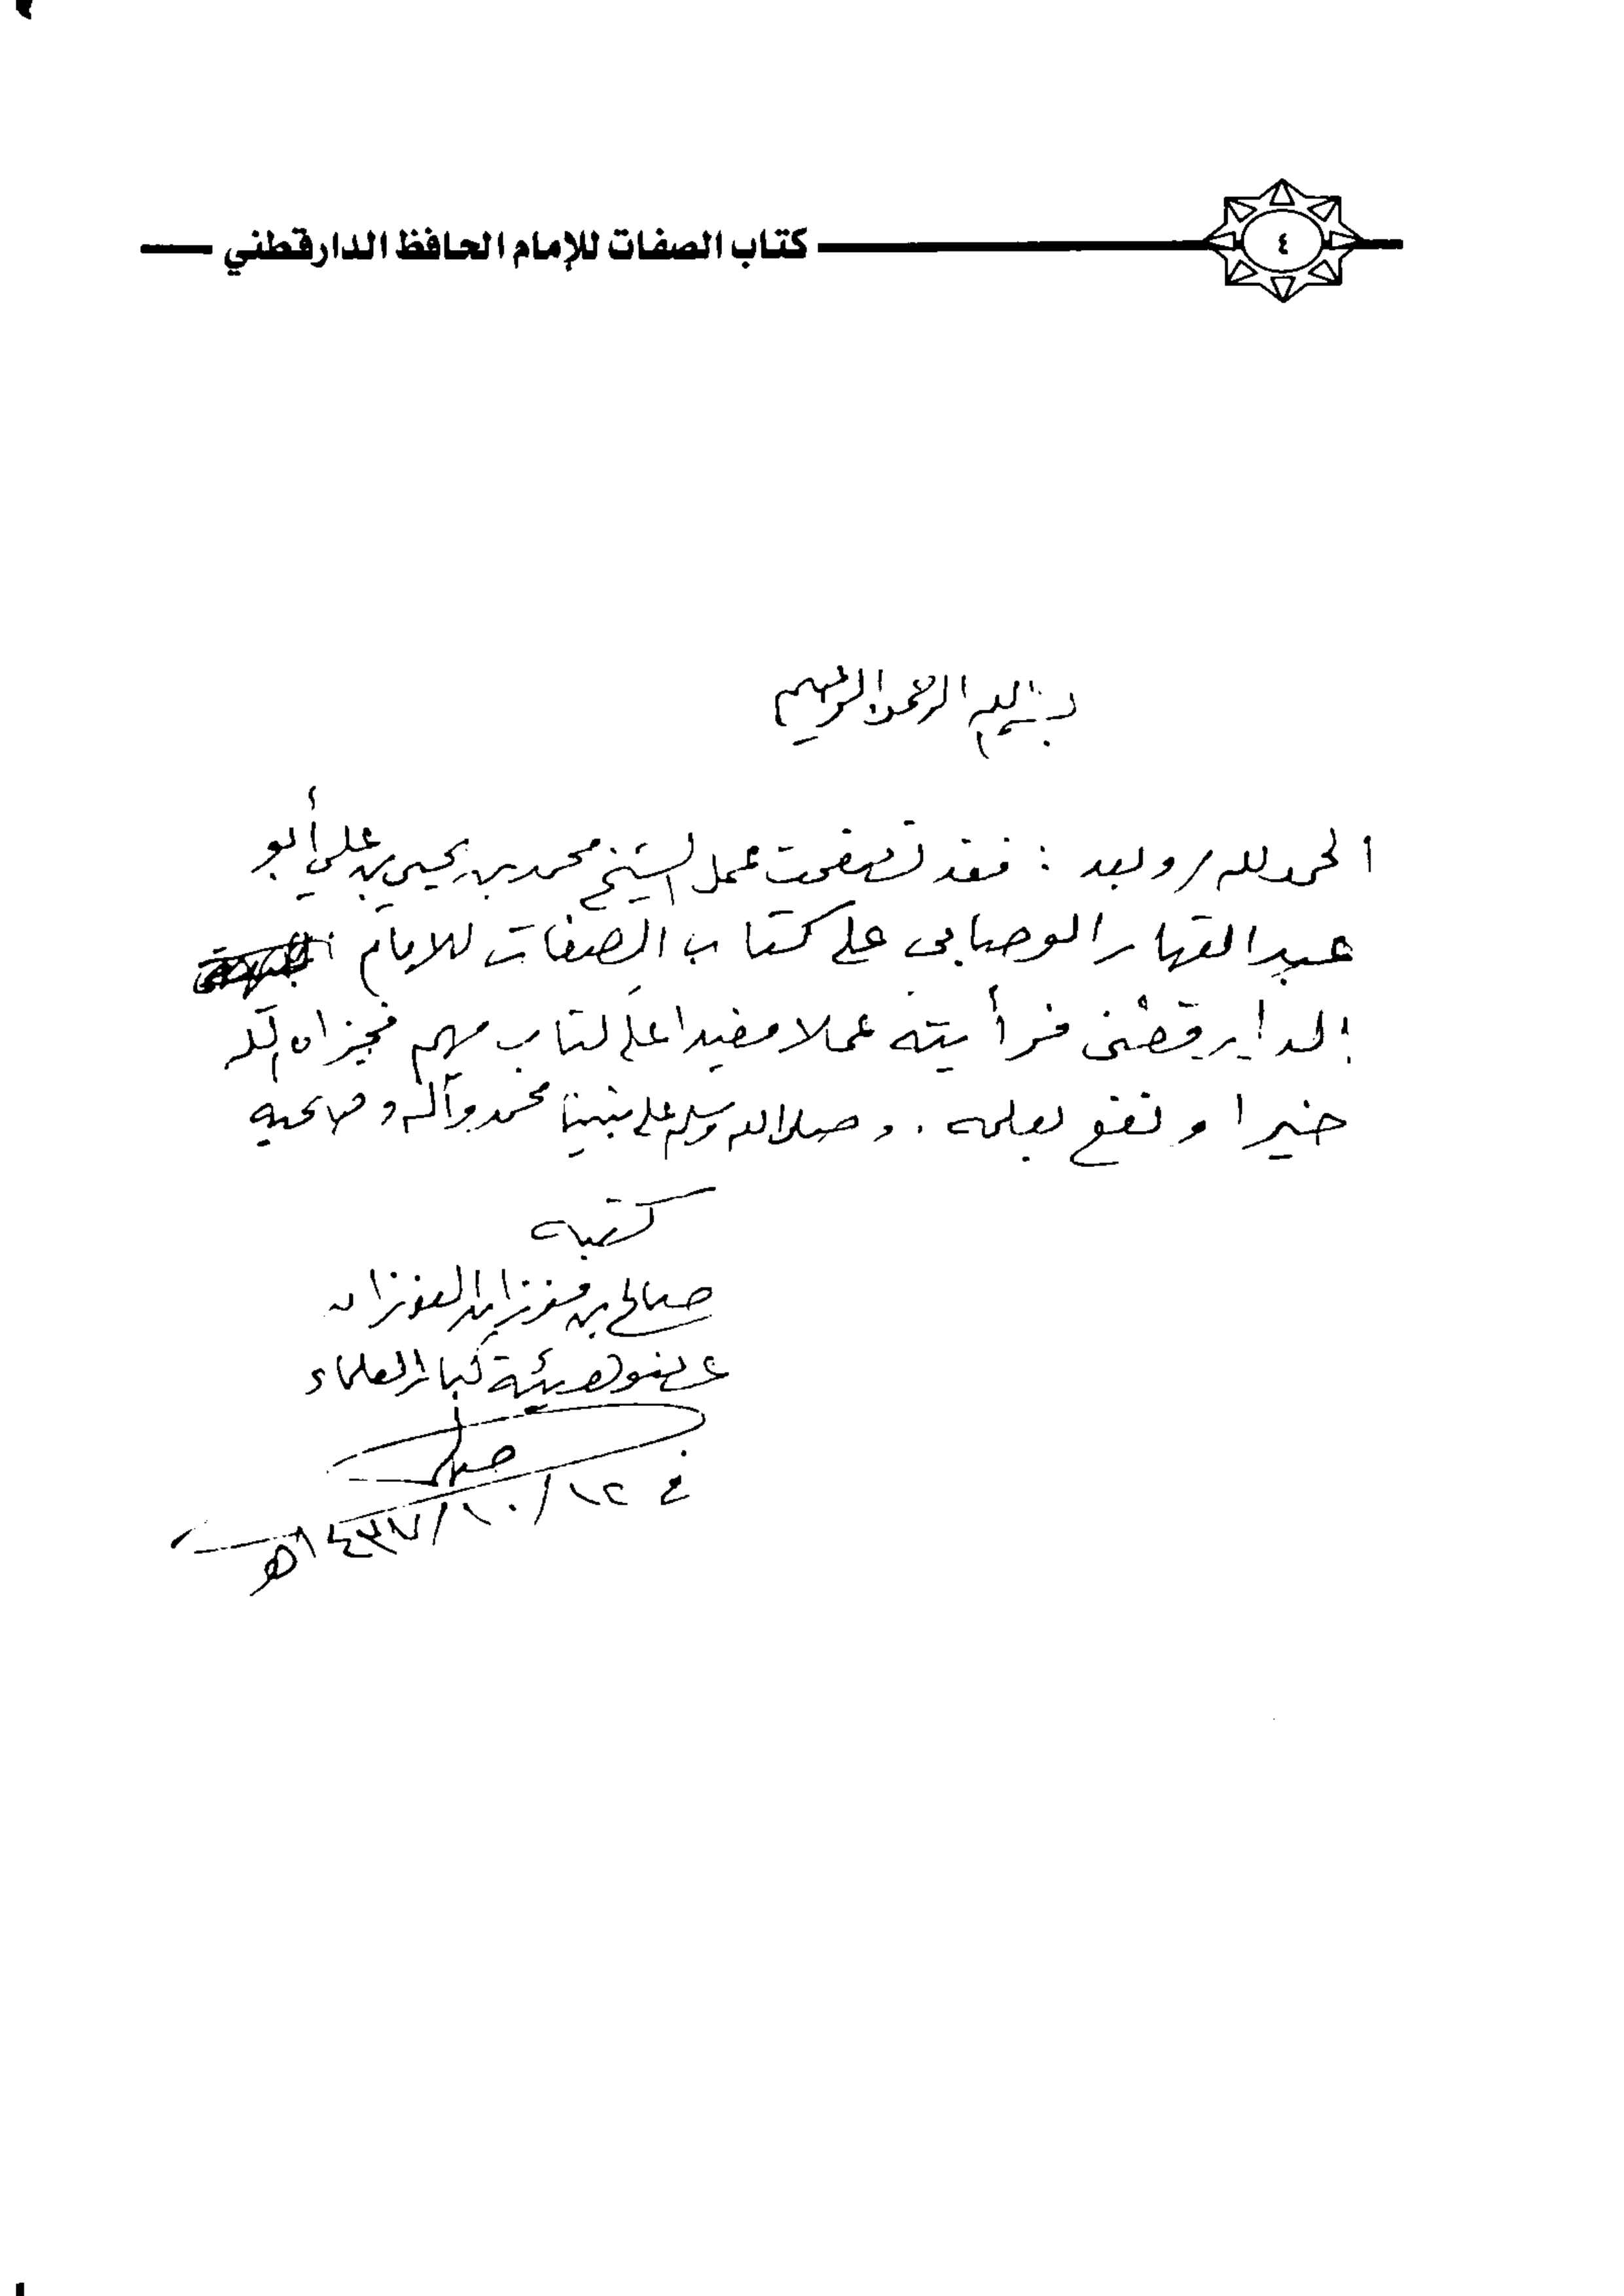 ٤
كتاب الصفات للإمام الحافظ الدارقطني
بسم الله الرحمن الرحيم
الحمد لله / وبعد : فقد تصفحت عمل الشيخ محمد بن يحيى بن علي أبو
عبد القهار الوصابي على كتاب الصفات للامام
الدارقطني فرأيته عملا مفيدا على كتاب مهم فجزاه الله
خيرا ونفع بعلمه . وصلى الله وسلم على نبينا محمد وآله وصحبه
كتبه
صالح بن فوزان الفوزان
عضو هيئة كبار العلماء
صالح
في ١٢/١٠/١٤٣٧هـ